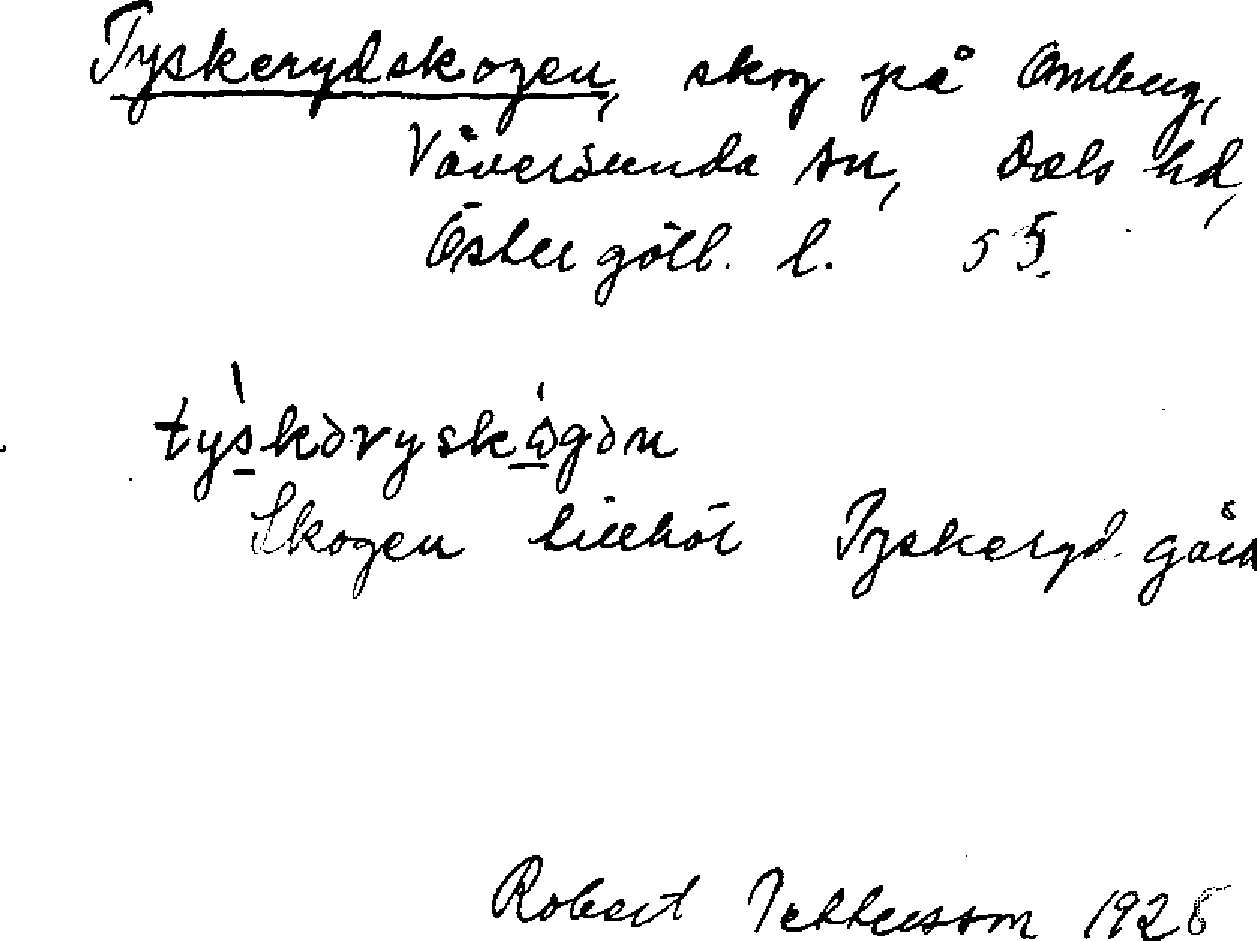 Tyskerydskogen, skog på Omberg,
Väversunda sn, Dals hd,
Östergötl. l. 55.
tỳskəryskògən
Skogen tillhör Tyskeryd gård
Robert Pettersson